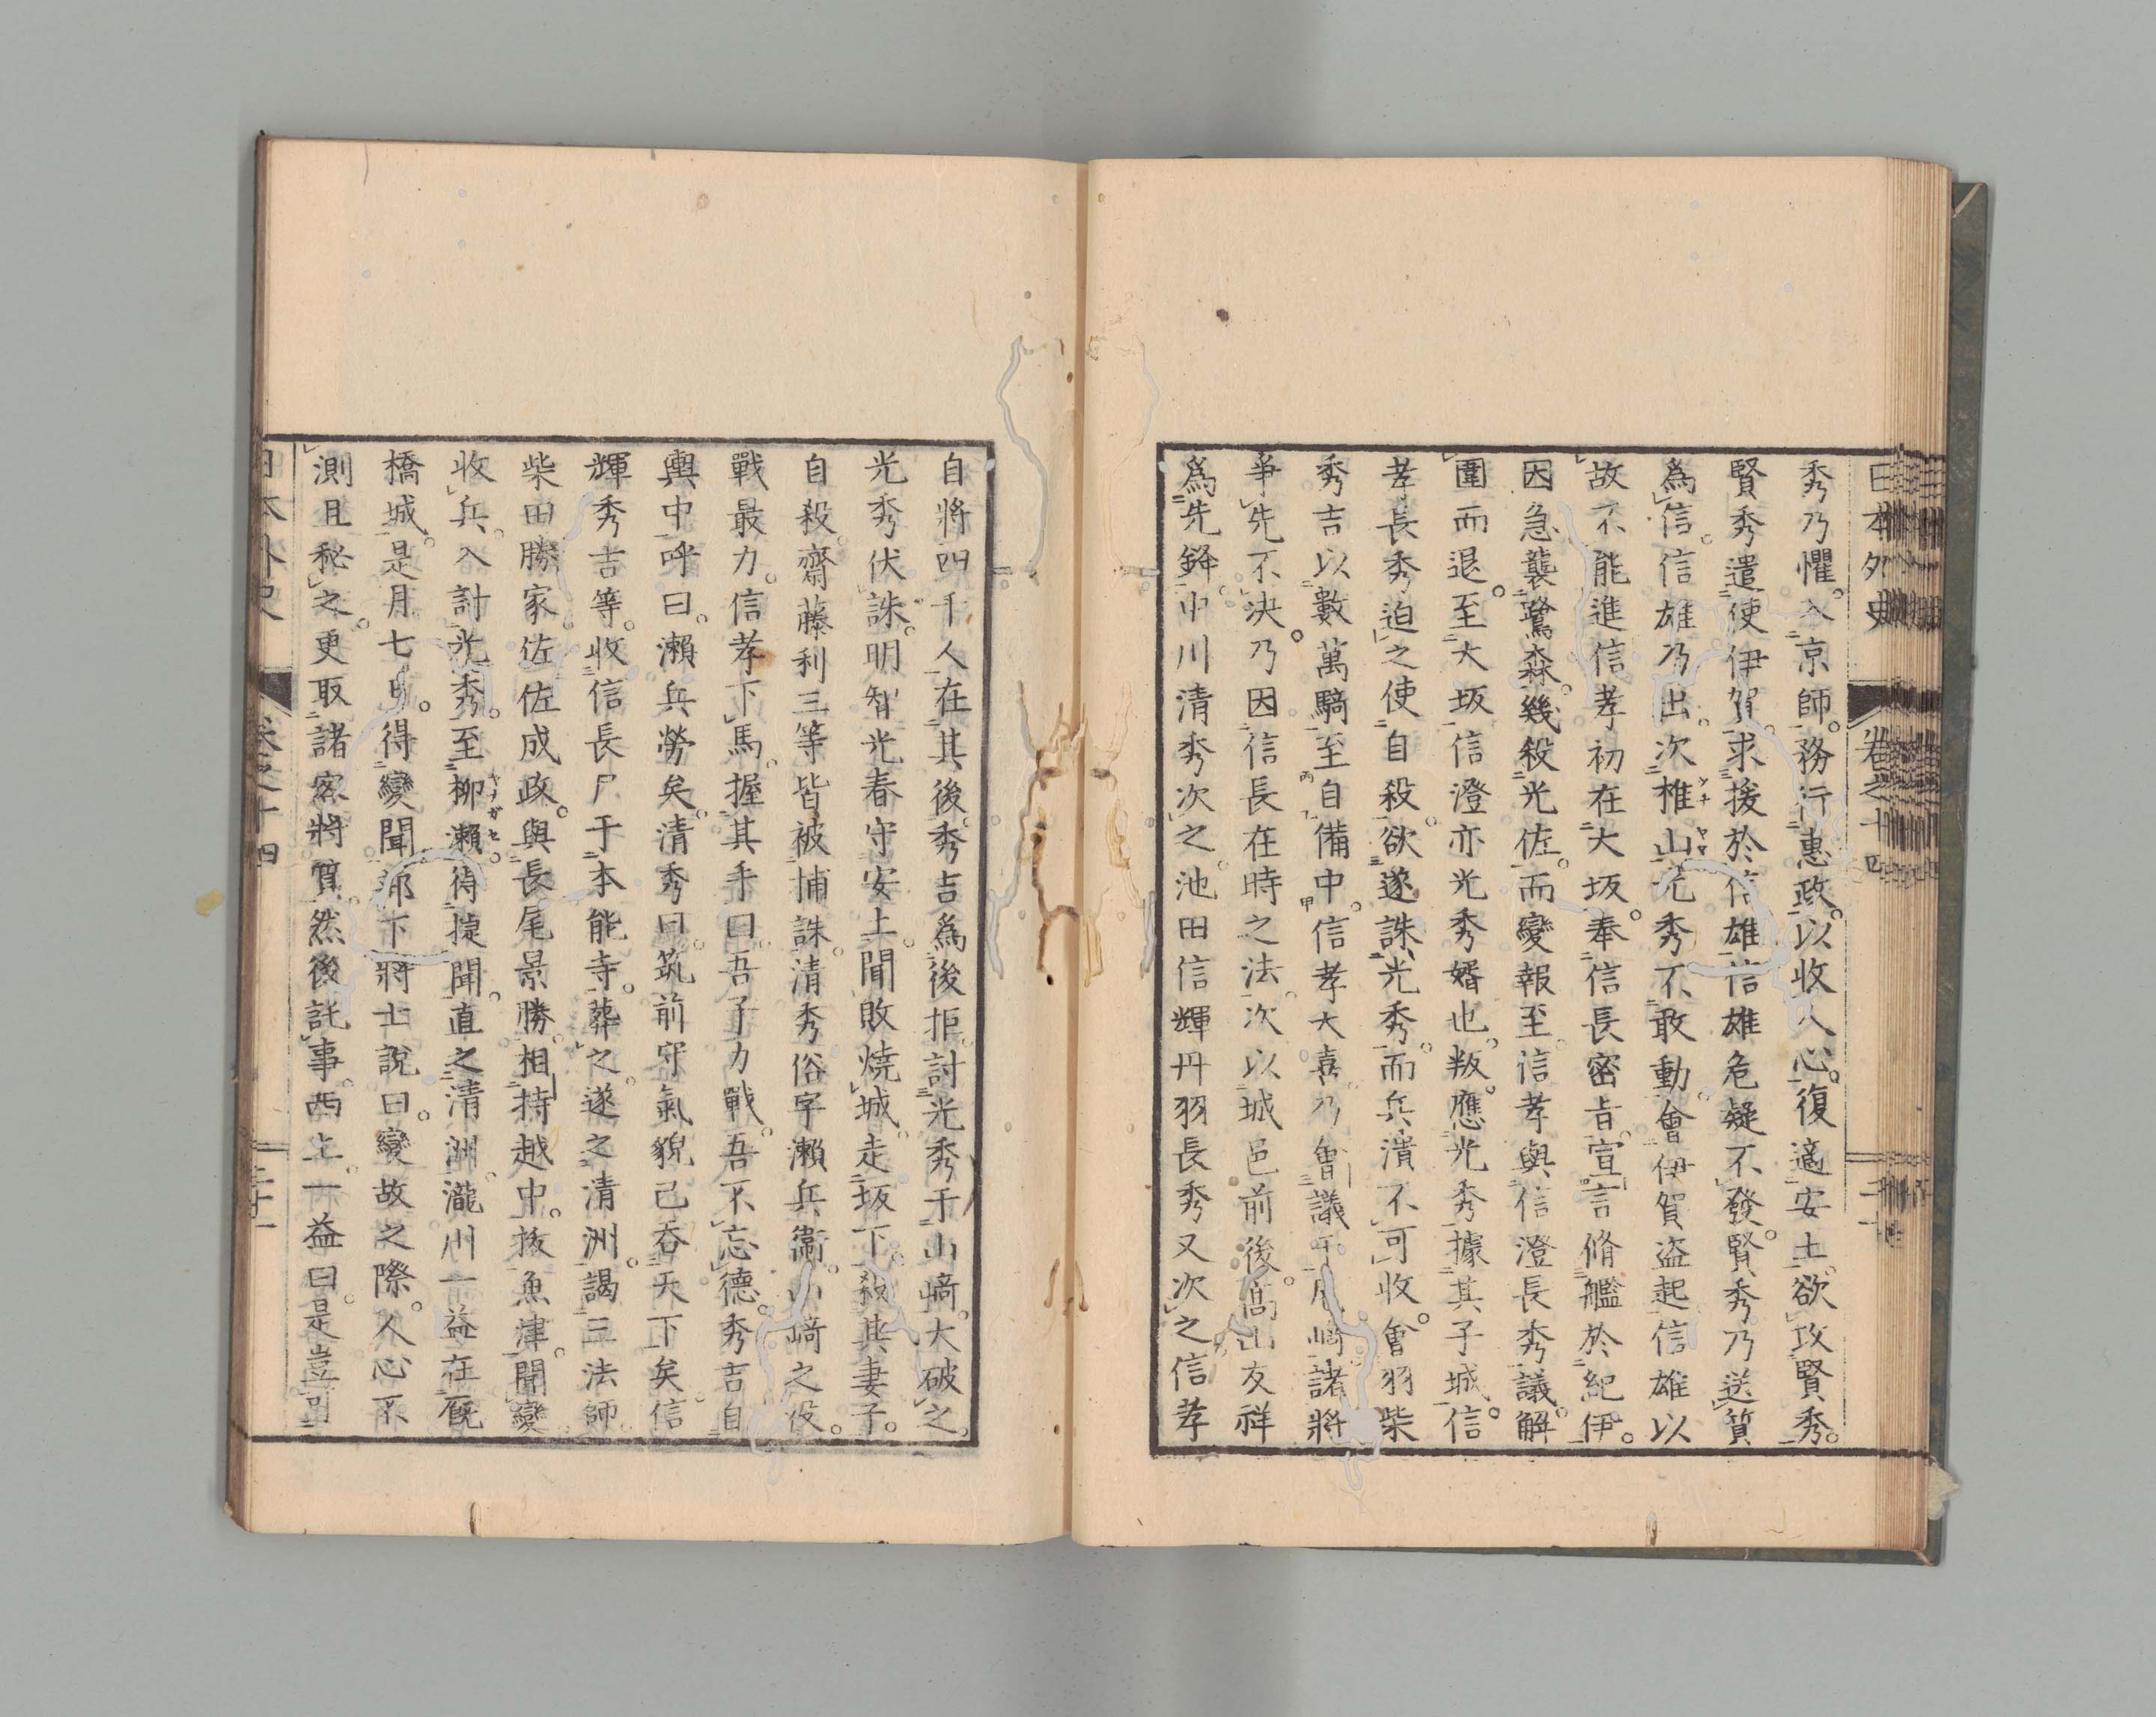 日本外史 卷之十四
秀乃懼。入京師。務行惠政。以收人心。復適安土。欲攻賢秀。
賢秀遣使伊賀。求援於信雄。信雄危疑不發。賢秀乃送質
爲信。信雄乃出。次椎山。光秀不敢動。會伊賀盜起。信雄以
故不能進。信孝初在大坂。奉信長密旨。宣言脩艦於紀伊。
因急襲鷺森。幾殺光佐。而變報至。信孝與信澄長秀議。解
圍而退。至大坂。信澄亦光秀婿也。叛應光秀。據其子城。信
孝長秀迫之使自殺。欲遂誅光秀。而兵潰不可收。會羽柴
秀吉以數萬騎至自備中。信孝大喜。乃會議于尼崎。諸將
爭先不決。乃因信長在時之法。次以城邑前後。高山友祥
爲先鋒。中川清秀次之。池田信輝丹羽長秀又次之。信孝
自將四千人在其後。秀吉爲後拒。討光秀于山崎。大破之。
光秀伏誅。明智光春守安土。聞敗燒城。走坂下。殺其妻子。
自殺。齋藤利三等皆被捕誅。清秀俗字瀨兵衞。山崎之役。
戰最力。信孝下馬。握其手曰。吾子力戰。吾不忘德。秀吉自
輿中呼曰。瀨兵勞矣。清秀曰。筑前守氣貌已呑天下矣。信
輝秀吉等。收信長尸于本能寺。葬之。遂之清洲。謁三法師。
柴田勝家佐佐成政。與長尾景勝。相持越中。拔魚津。聞變
收兵。入討光秀。至柳瀨。得捷聞。直之清洲。瀧川一益在厩
橋城。是月七日。得變聞。部下將士說曰。變故之際。人心不
測。且秘之。更取諸家將質。然後託事西上。一益曰。是豈可
日本外史 卷之十四 二十一